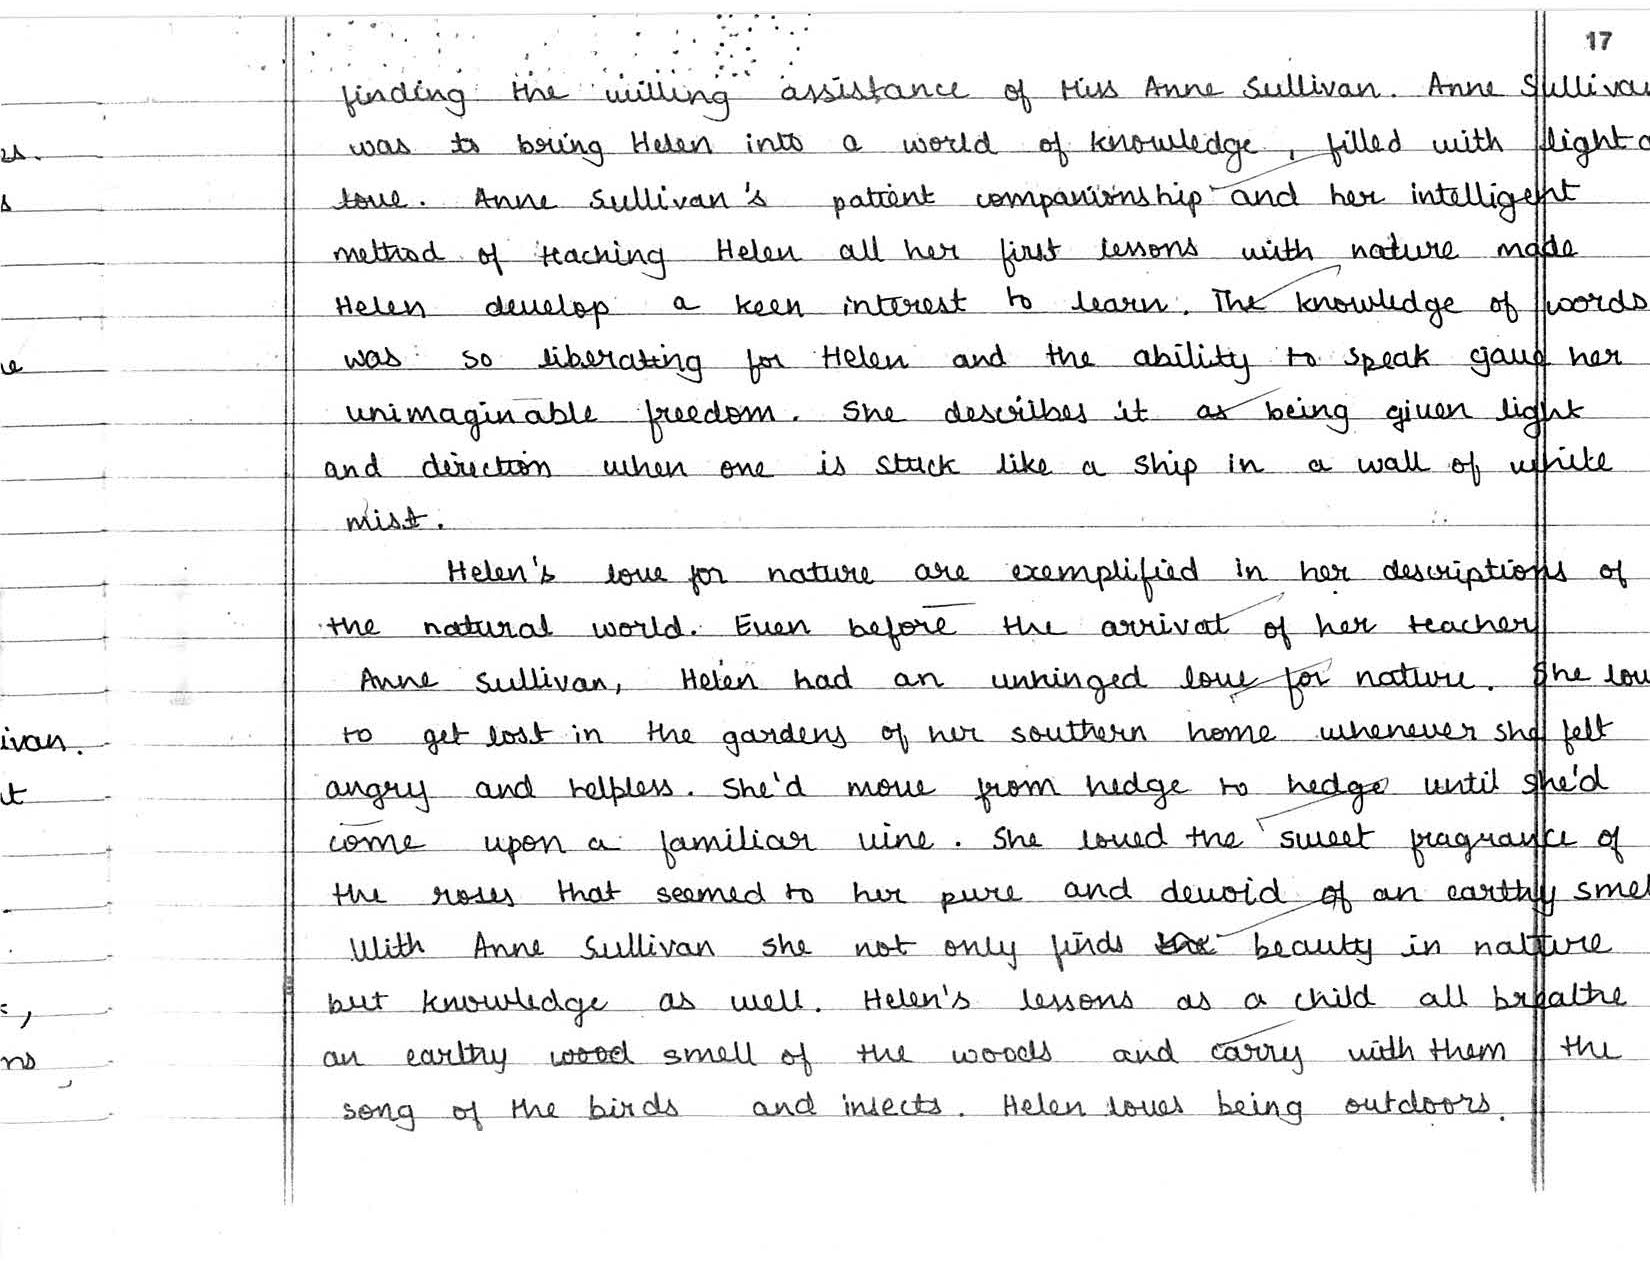 17
finding the willing assistance of Miss Anne Sullivan. Anne Sullivan
was to bring Helen into a world of knowledge, filled with light
love. Anne Sullivan's patient companionship and her intelligent
method of teaching Helen all her first lessons with nature made
Helen develop a keen interest to learn. The knowledge of words
was so liberating for Helen and the ability to speak gave her
unimaginable freedom. She describes it as being given light
and direction when one is stuck like a ship in a wall of white
mist.
Helen's love for nature are exemplified in her descriptions of
the natural world. Even before the arrival of her teacher
Anne Sullivan, Helen had an unhinged love for nature. She
to get lost in the gardens of her southern home whenever she felt
angry and helpless. She'd move from hedge to hedge until she'd
come upon a familiar vine. She loved the sweet fragrance of
the roses that seemed to her pure and devoid of an earthy smel
With Anne Sullivan she not only finds beauty in nature
but knowledge as well. Helen's lessons as a child all breathe
an earthy smell of the woods and carry with them the
song of the birds and insects. Helen loves being outdoors.